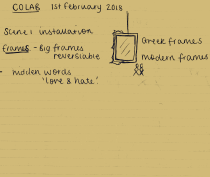 COLAB 1st february 2018
Scene 1 installation
frames - Big frames
reversiable
Greek frames
modern frames
- hidden words
'love & hate'